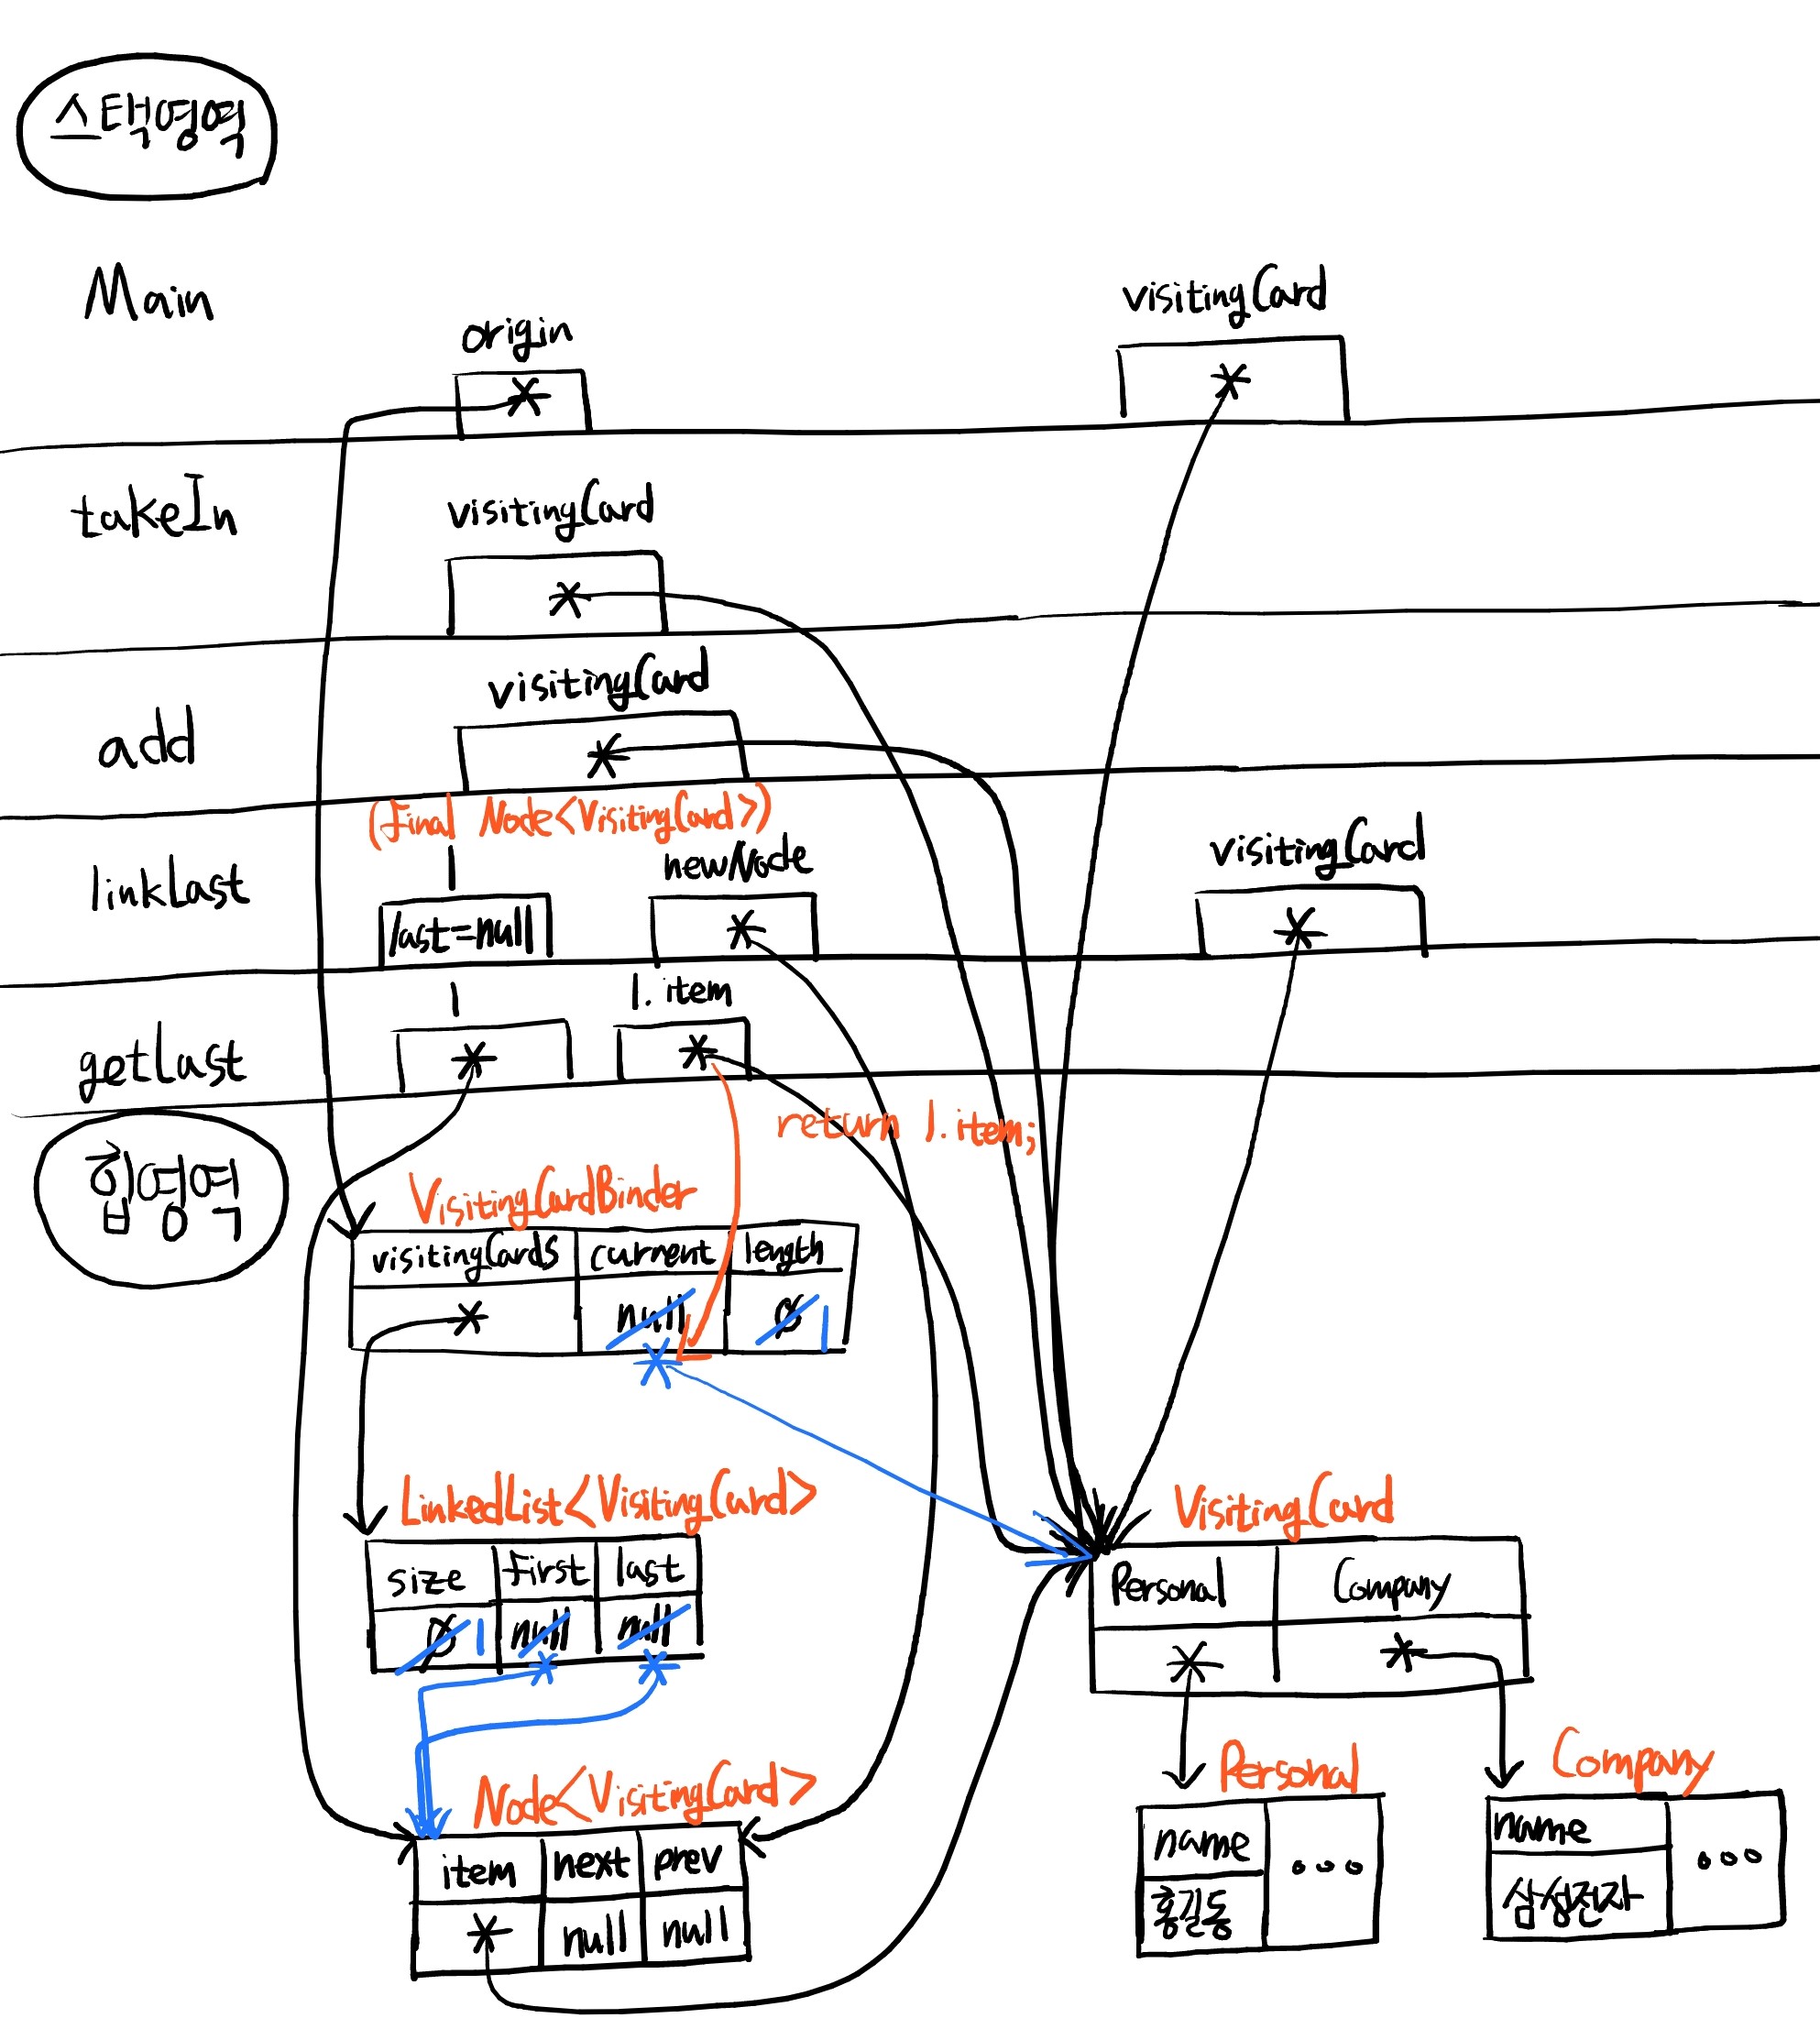 스택영역
Main
origin
visitingCard
takeIn
visitingCard
add
visitingCard
(final Node<VisitingCard>)
linkLast
l
newNode
visitingCard
last=null
getLast
l
l.item
return l.item;
힙영역
VisitingCardBinder
visitingCards current length
null 0 1
LinkedList<VisitingCard>
size first last
0 1 null null
VisitingCard
Personal Company
Node<VisitingCard>
item next prev
null null
Personal
name ...
홍길동
Company
name ...
삼성전자